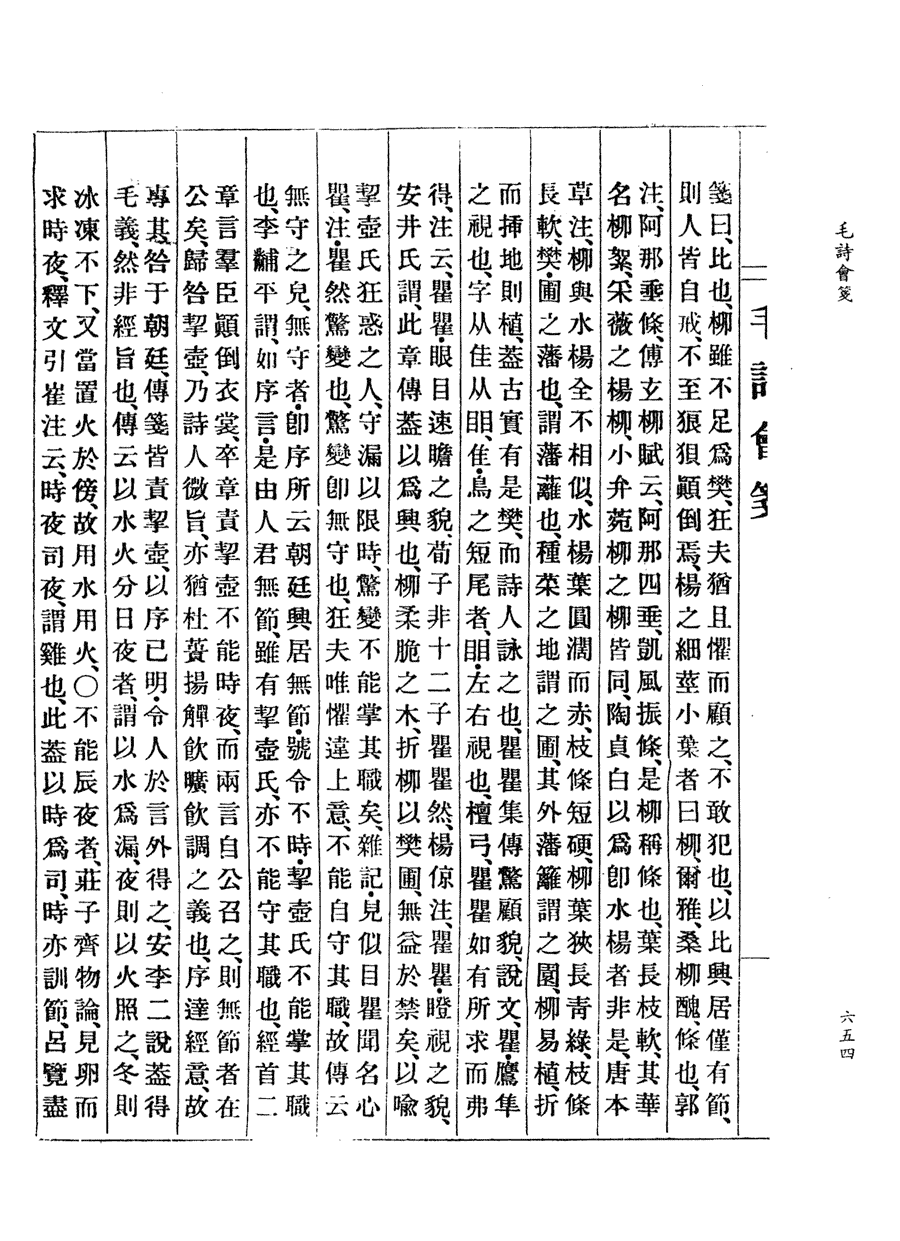 毛詩會箋
六五四
毛詩會箋
箋曰、比也、柳雖不足爲樊、狂夫猶且懼而顧之、不敢犯也、以比興居僅有節、
則人皆自戒、不至狼狽顚倒焉、楊之細莖小葉者曰柳、爾雅、桑柳醜、條也、郭
注、阿那垂條、傅玄柳賦云、阿那四垂、凱風振條、是柳稱條也、葉長枝軟、其華
名柳絮、采薇之楊柳、小弁菀柳之柳皆同、陶貞白以爲卽水楊者非是、唐本
草注、柳與水楊全不相似、水楊葉圓濶而赤、枝條短硬、柳葉狹長靑綠、枝條
長軟、樊・圃之藩也、謂藩蘺也、種菜之地謂之圃、其外藩籬謂之園、柳易植、折
而揷地則植、蓋古實有是樊、而詩人詠之也、瞿瞿集傳驚顧貌、說文、瞿・鷹隼
之視也、字从隹从䀠、隹・鳥之短尾者、䀠・左右視也、檀弓、瞿瞿如有所求而弗
得、注云、瞿瞿・眼目速瞻之貌、荀子非十二子瞿瞿然、楊倞注、瞿瞿・瞪視之貌、
安井氏謂、此章傳蓋以爲興也、柳柔脆之木、折柳以樊圃、無益於禁矣、以喩
挈壺氏狂惑之人、守漏以限時、驚變不能掌其職矣、雜記・見似目瞿聞名心
瞿、注・瞿然驚變也、驚變卽無守也、狂夫唯懼違上意、不能自守其職、故傳云
無守之皃、無守者・卽序所云朝廷興居無節・號令不時・挈壺氏不能掌其職
也、李黼平謂、如序言・是由人君無節、雖有挈壺氏、亦不能守其職也、經首二
章言羣臣顚倒衣裳、卒章責挈壺不能時夜、而兩言自公召之、則無節者在
公矣、歸咎挈壺、乃詩人微旨、亦猶杜蕢揚觶飮曠飮調之義也、序達經意、故
專其咎于朝廷、傳箋皆責挈壺、以序已明・令人於言外得之、安李二說蓋得
毛義、然非經旨也、傳云以水火分日夜者、謂以水爲漏、夜則以火照之、冬則
冰凍不下、又當置火於傍、故用水用火、〇不能辰夜者、莊子齊物論、見卵而
求時夜、釋文引崔注云、時夜司夜、謂雞也、此蓋以時爲司、時亦訓節、呂覽盡